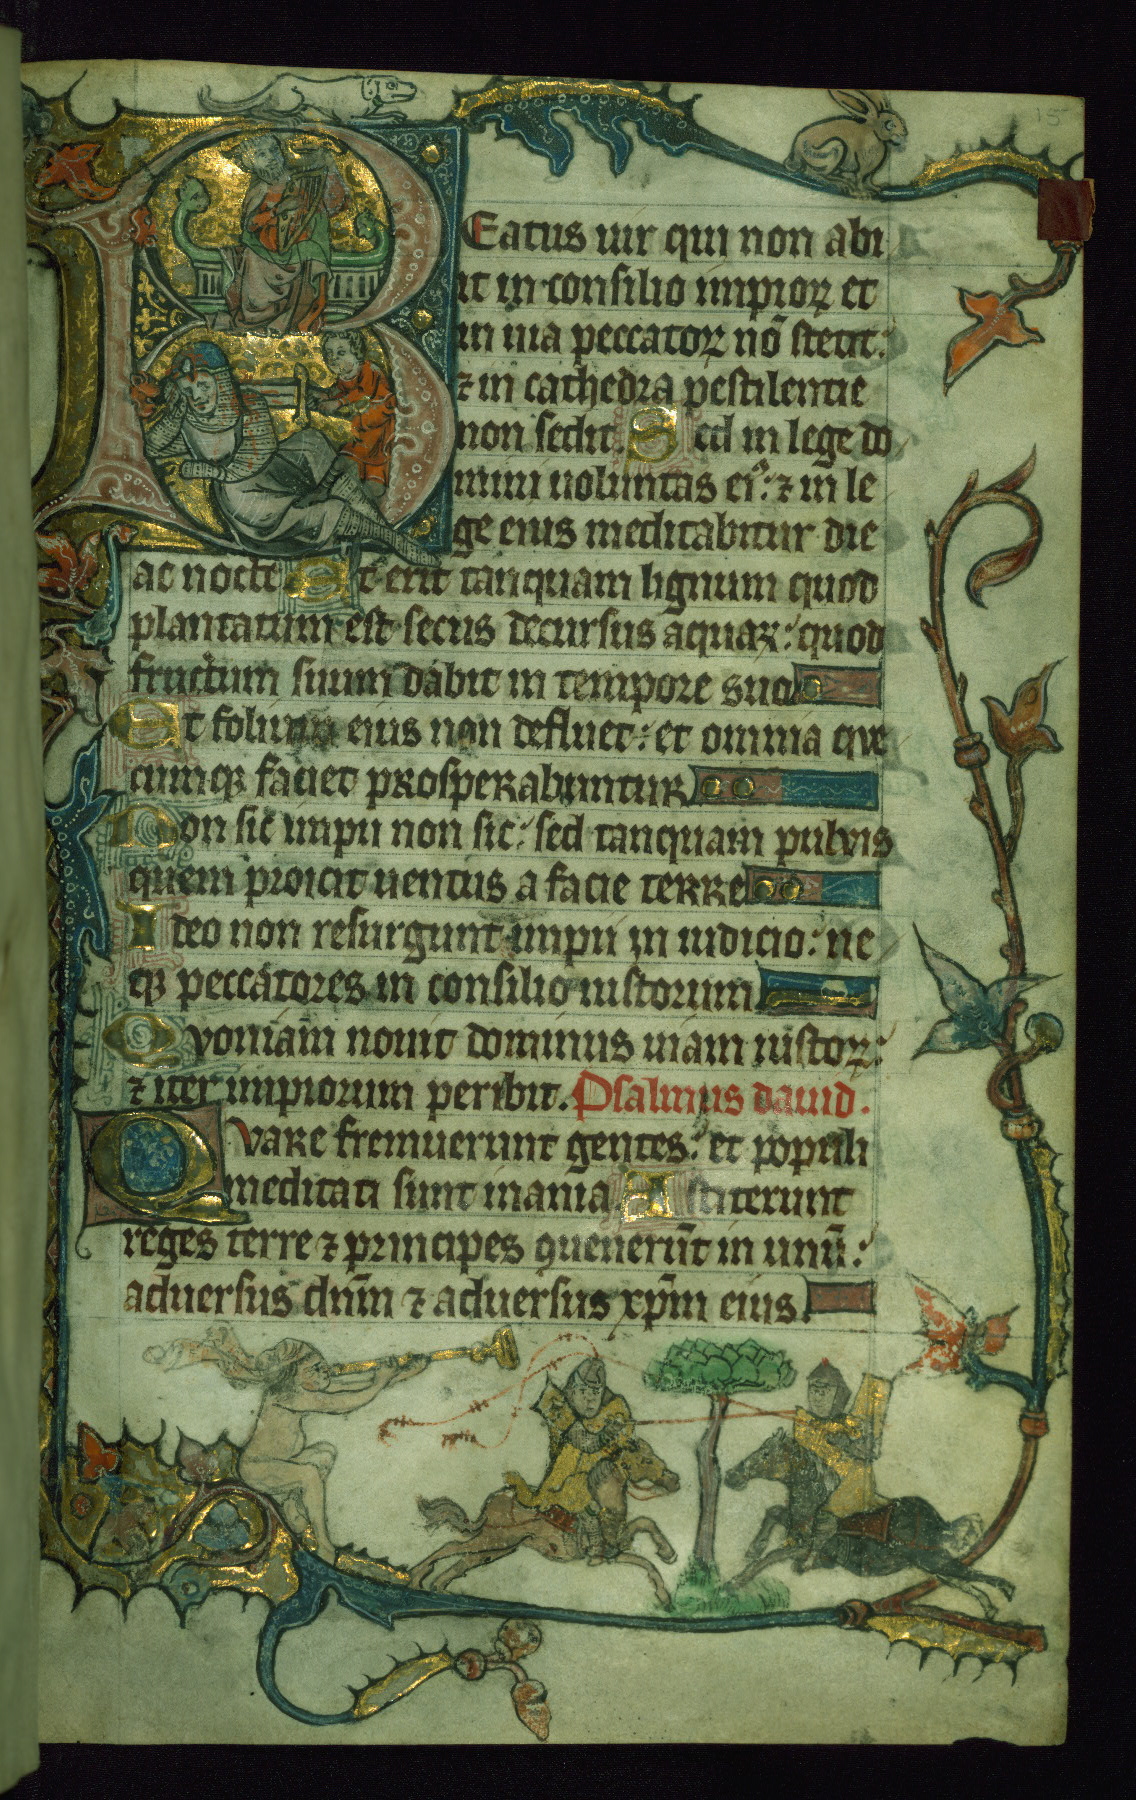 15
BEatus uir qui non abi
it in consilio impioꝝ et
in uia peccatoꝝ nō stetit:
⁊ in cathedra pestilentie
non sedit. Sed in lege do
mini uoluntas ei᷒: ⁊ in le
ge eius meditabitur die
ac nocte Et erit tanquam lignum quod
plantatum est secus decursus aquaꝝ: quod
fructum suum dabit in tempore suo
Et folium eius non defluet: et omnia que
cumqꝫ faciet prosperabuntur
Non sic impii non sic: sed tanquam pulvis
quem proicit uentus a facie terre
Ideo non resurgunt impii in iudicio: ne
qꝫ peccatores in consilio iustorum
Qvoniam nouit dominus uiam iustoꝝ:
⁊ iter impiorum peribit. Psalmus dauid.
Qvare fremuerunt gentes: et populi
meditati sunt inania Astiterunt
reges terre ⁊ principes ꝯuenerūt in unū:
aduersus dn̄m ⁊ aduersus xp̄m eius.